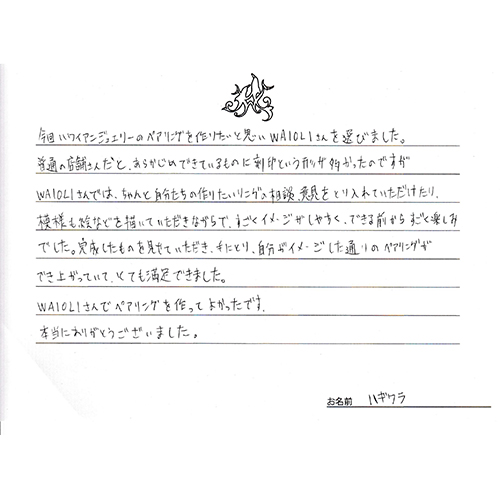 今回ハワイアンジュエリーのペアリングを作りたいと思いWAIOLIさんを選びました。
普通の店舗さんだと、あらかじめできているものに刻印という方が多かったのですが
WAIOLIさんでは、ちゃんと自分たちの作りたいリングの相談、意見をとり入れていただけたり、
模様も絵などを描いていただきながらで、すごくイメージがしやすく、できる前からすごく楽しみ
でした。完成したものを見せていただき、手にとり、自分がイメージした通りのペアリングが
でき上がっていて、とても満足できました。
WAIOLIさんでペアリングを作ってよかったです。
本当にありがとうございました。
お名前 ハギワラ